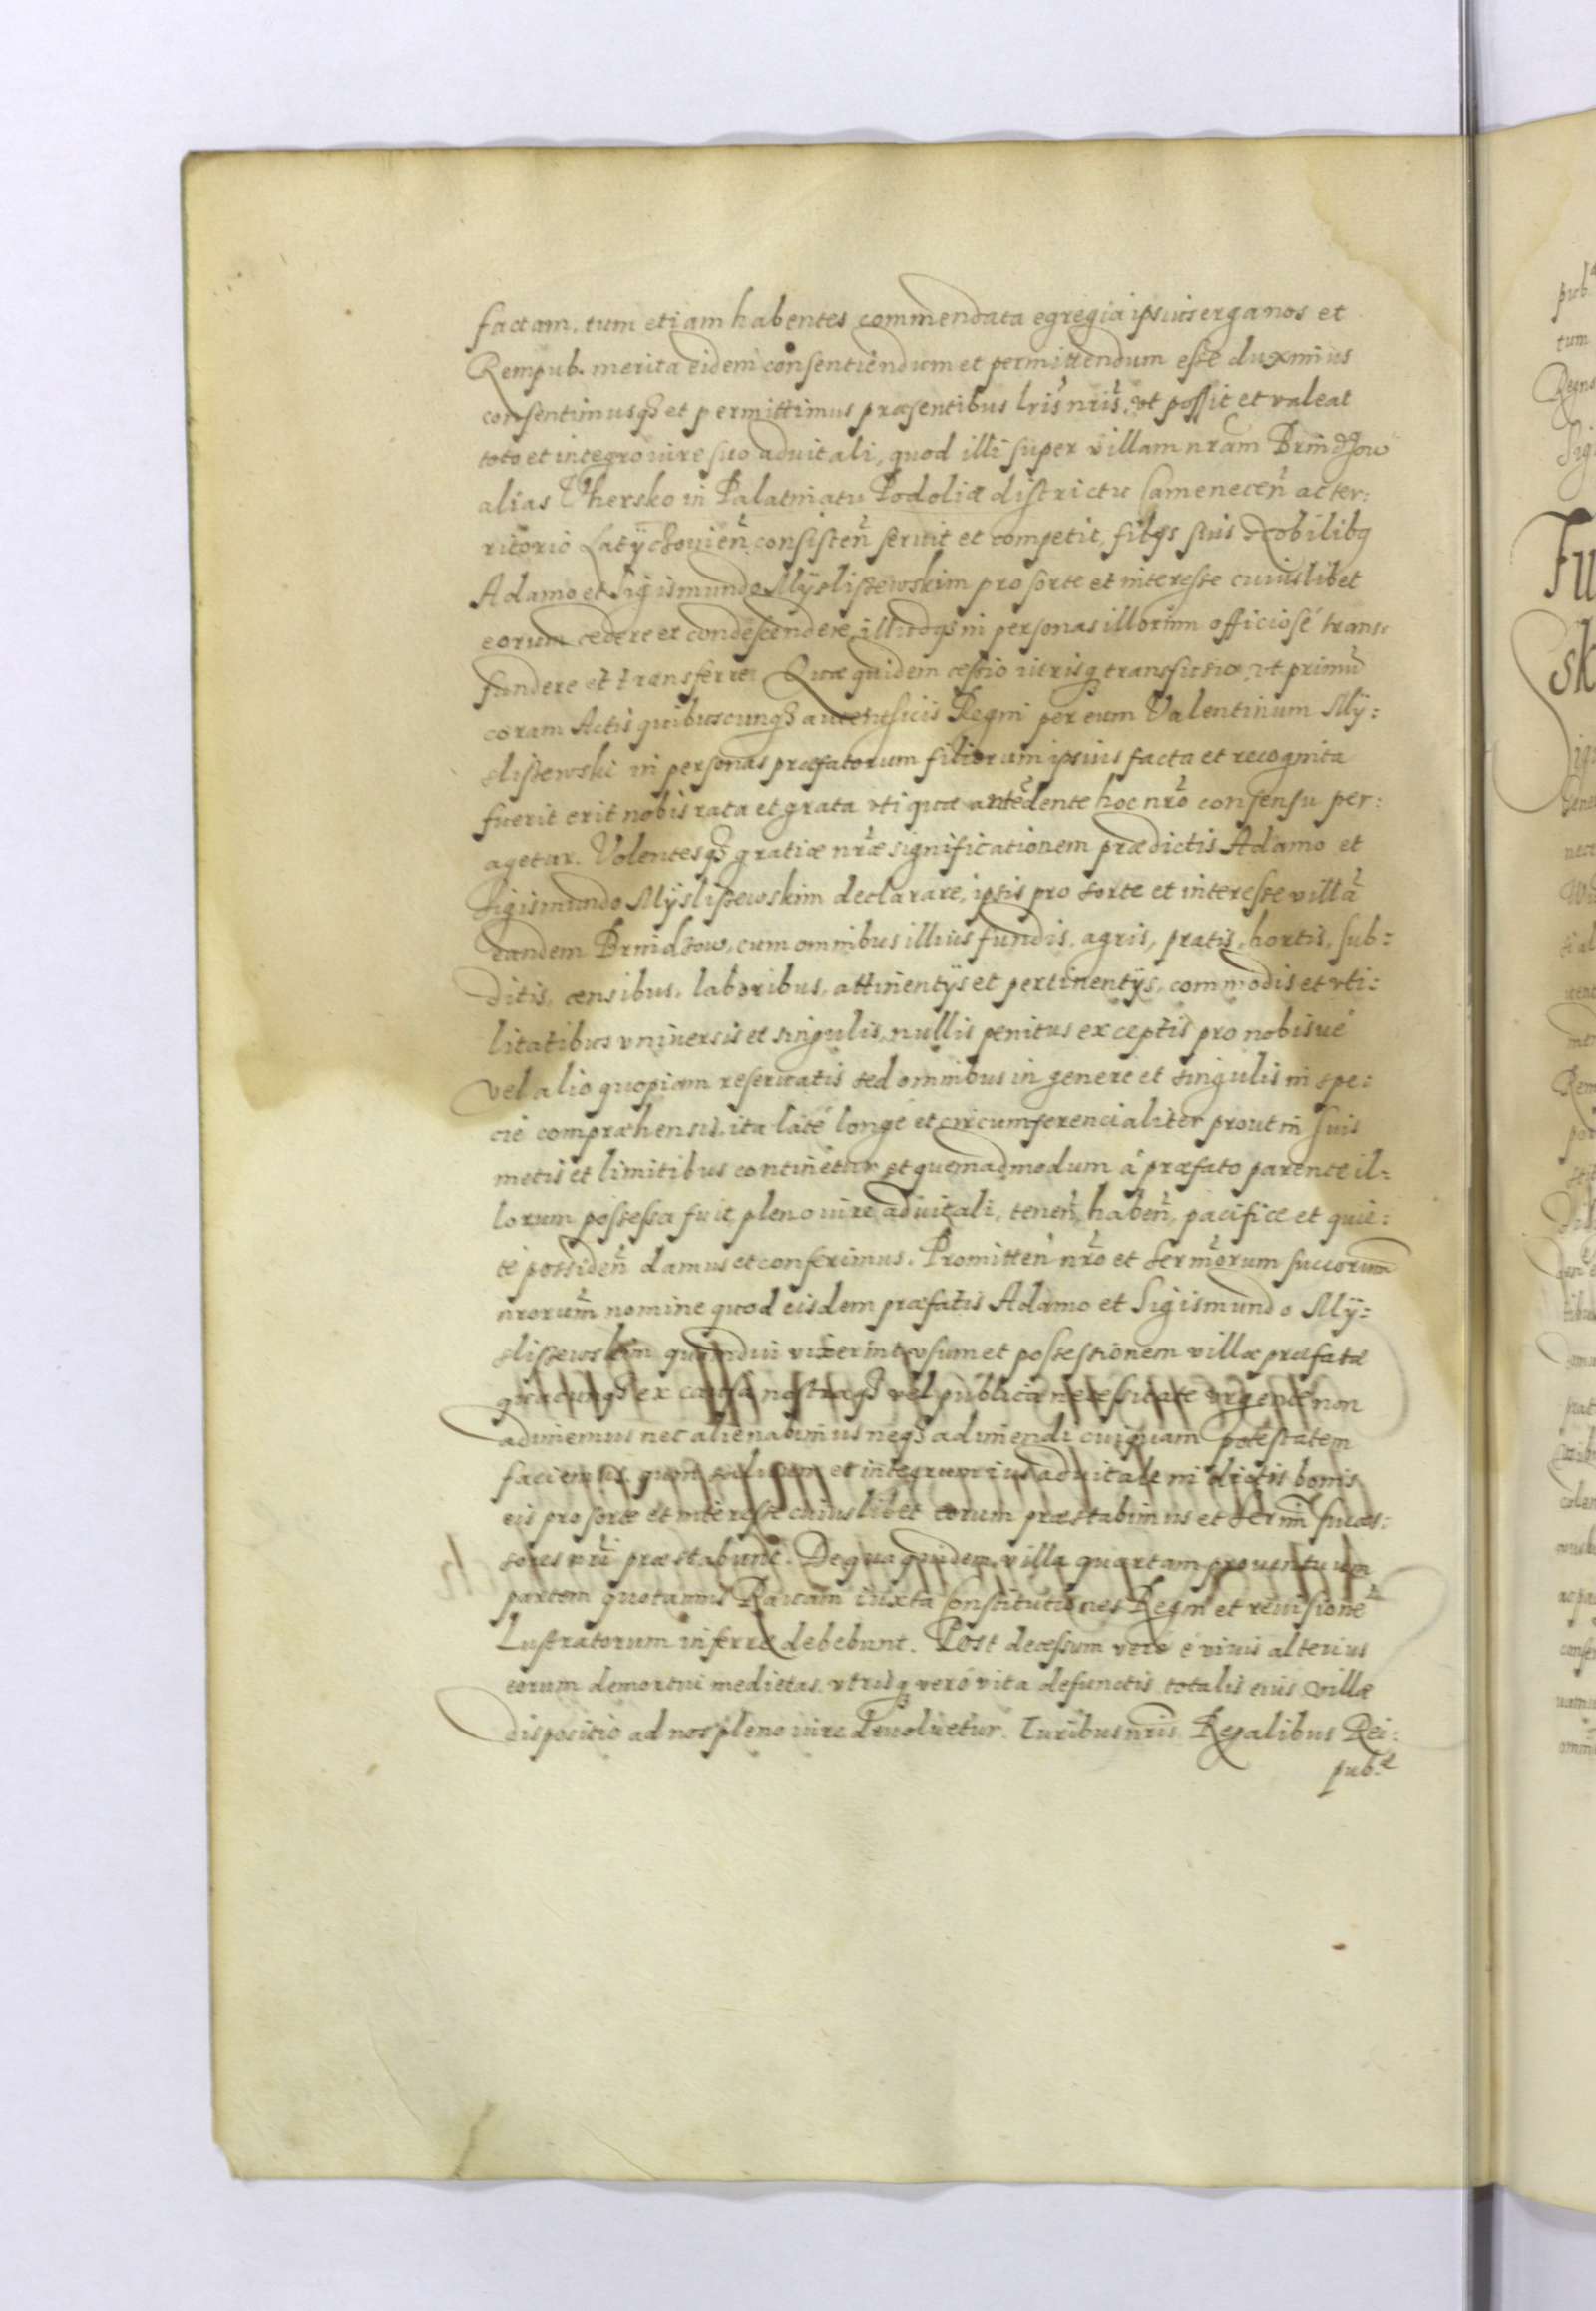 factam. tum etiam habentes commendata egregia ipsius erga nos et
Rempub. merita eidem consentiendum et permittendum esse duximus
consentimusq3 et permittimus præsentibus lris nris, vt possit et valeat
toto et integro iure suo aduitali, quod illi super villam nram Brnidzow
alias Uhersko in Palatinatu Podoliæ districtu Camenecen̄ ac ter:
ritorio Latyczouien̄ consisten̄ seruit et competit, filys suis Nobilibq
Adamo et Sigismundo Myslistewskim pro sorte et interesse cuiuslibet
eorum cedere et condescendere, illudq3 in personas illorum officiosé trans:
fundere et transferre. Quæ quidem cessio iurisq transfusio, vt primū
coram Actis quibuscunq3 autenticis Regni per eum Valentinum My:
slistewski in personas præfatorum filiorum ipsius facta et recognita
fuerit erit nobis rata et grata vti quæ antēdente hoc nr̄o consensu per:
agetur. Volentesq3 gratiæ nr̄æ significationem prædictis Adamo et
Sigismundo Myslistewskim declarare, ipsis pro sorte et interesse villā
eandem Brnidzow, cum omnibus illius fundis, agris, pratis, hortis, sub:
ditis, censibus, laboribus, attinentÿs et pertinentÿs, commodis et vti:
litatibus vniuersis et singulis, nullis penitus exceptis pro nobisué
vel alio quopiam reseruatis sed omnibus in genere et singulis in spe:
cie compræhensis, ita laté longé et circumferencialiter prout in suis
metis et limitibus continetur et quemadmodum á præfato parente il:
lorum possessa fuit pleno iure aduitali, tenen̄, haben̄, pacifice et quie:
té possiden̄ damus et conferimus. Promitten̄ nr̄o et sermorum succorum
nrorum nomine quod eisdem præfatis Adamo et Sigismundo My:
slistewskim quamdiu vixerint vsum et possessionem villæ præfatæ
quacunq3 ex causa nostraq3 vel publica necessitate vrgente non
adimemus nec alienabimus neq3 adimendi cuiquam potestatem
faciemus quin saluum et integrum ius aduitale in dictis bonis
eis pro sorte et interesse cuiuslibet eorum præstabimus et Sermi succes:
sores nr̄i præstabunt. De qua quidem villa quartam prouentuum
partem quotannis Rauam iuxta Constitutiones Regni et reuisionē
Lustratorum inferre debebunt. Post decessum veró é viuis alterius
eorum demortui medietas, vtrisq veró vita defunctis totalis eius villæ
dispositio ad nos pleno iure deuoluetur. Iuribus nris Regalibus Rei:
pub.æ